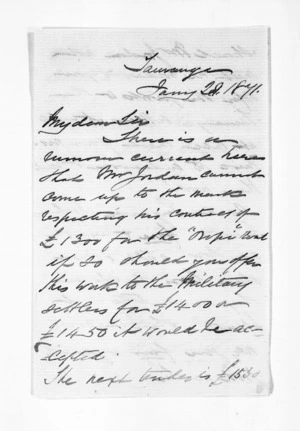 Tauranga
Jany 28. 1871.
My dear Sir
There is a
rumour current here
that Mr Jordan cannot
come up to the mark
respecting his contract of
£1300 for the "Oropi" road
if so should you offer
this work to the Military
settlers for £1400 or
£1450 it would be ac-
cepted.
The next tender is £1530